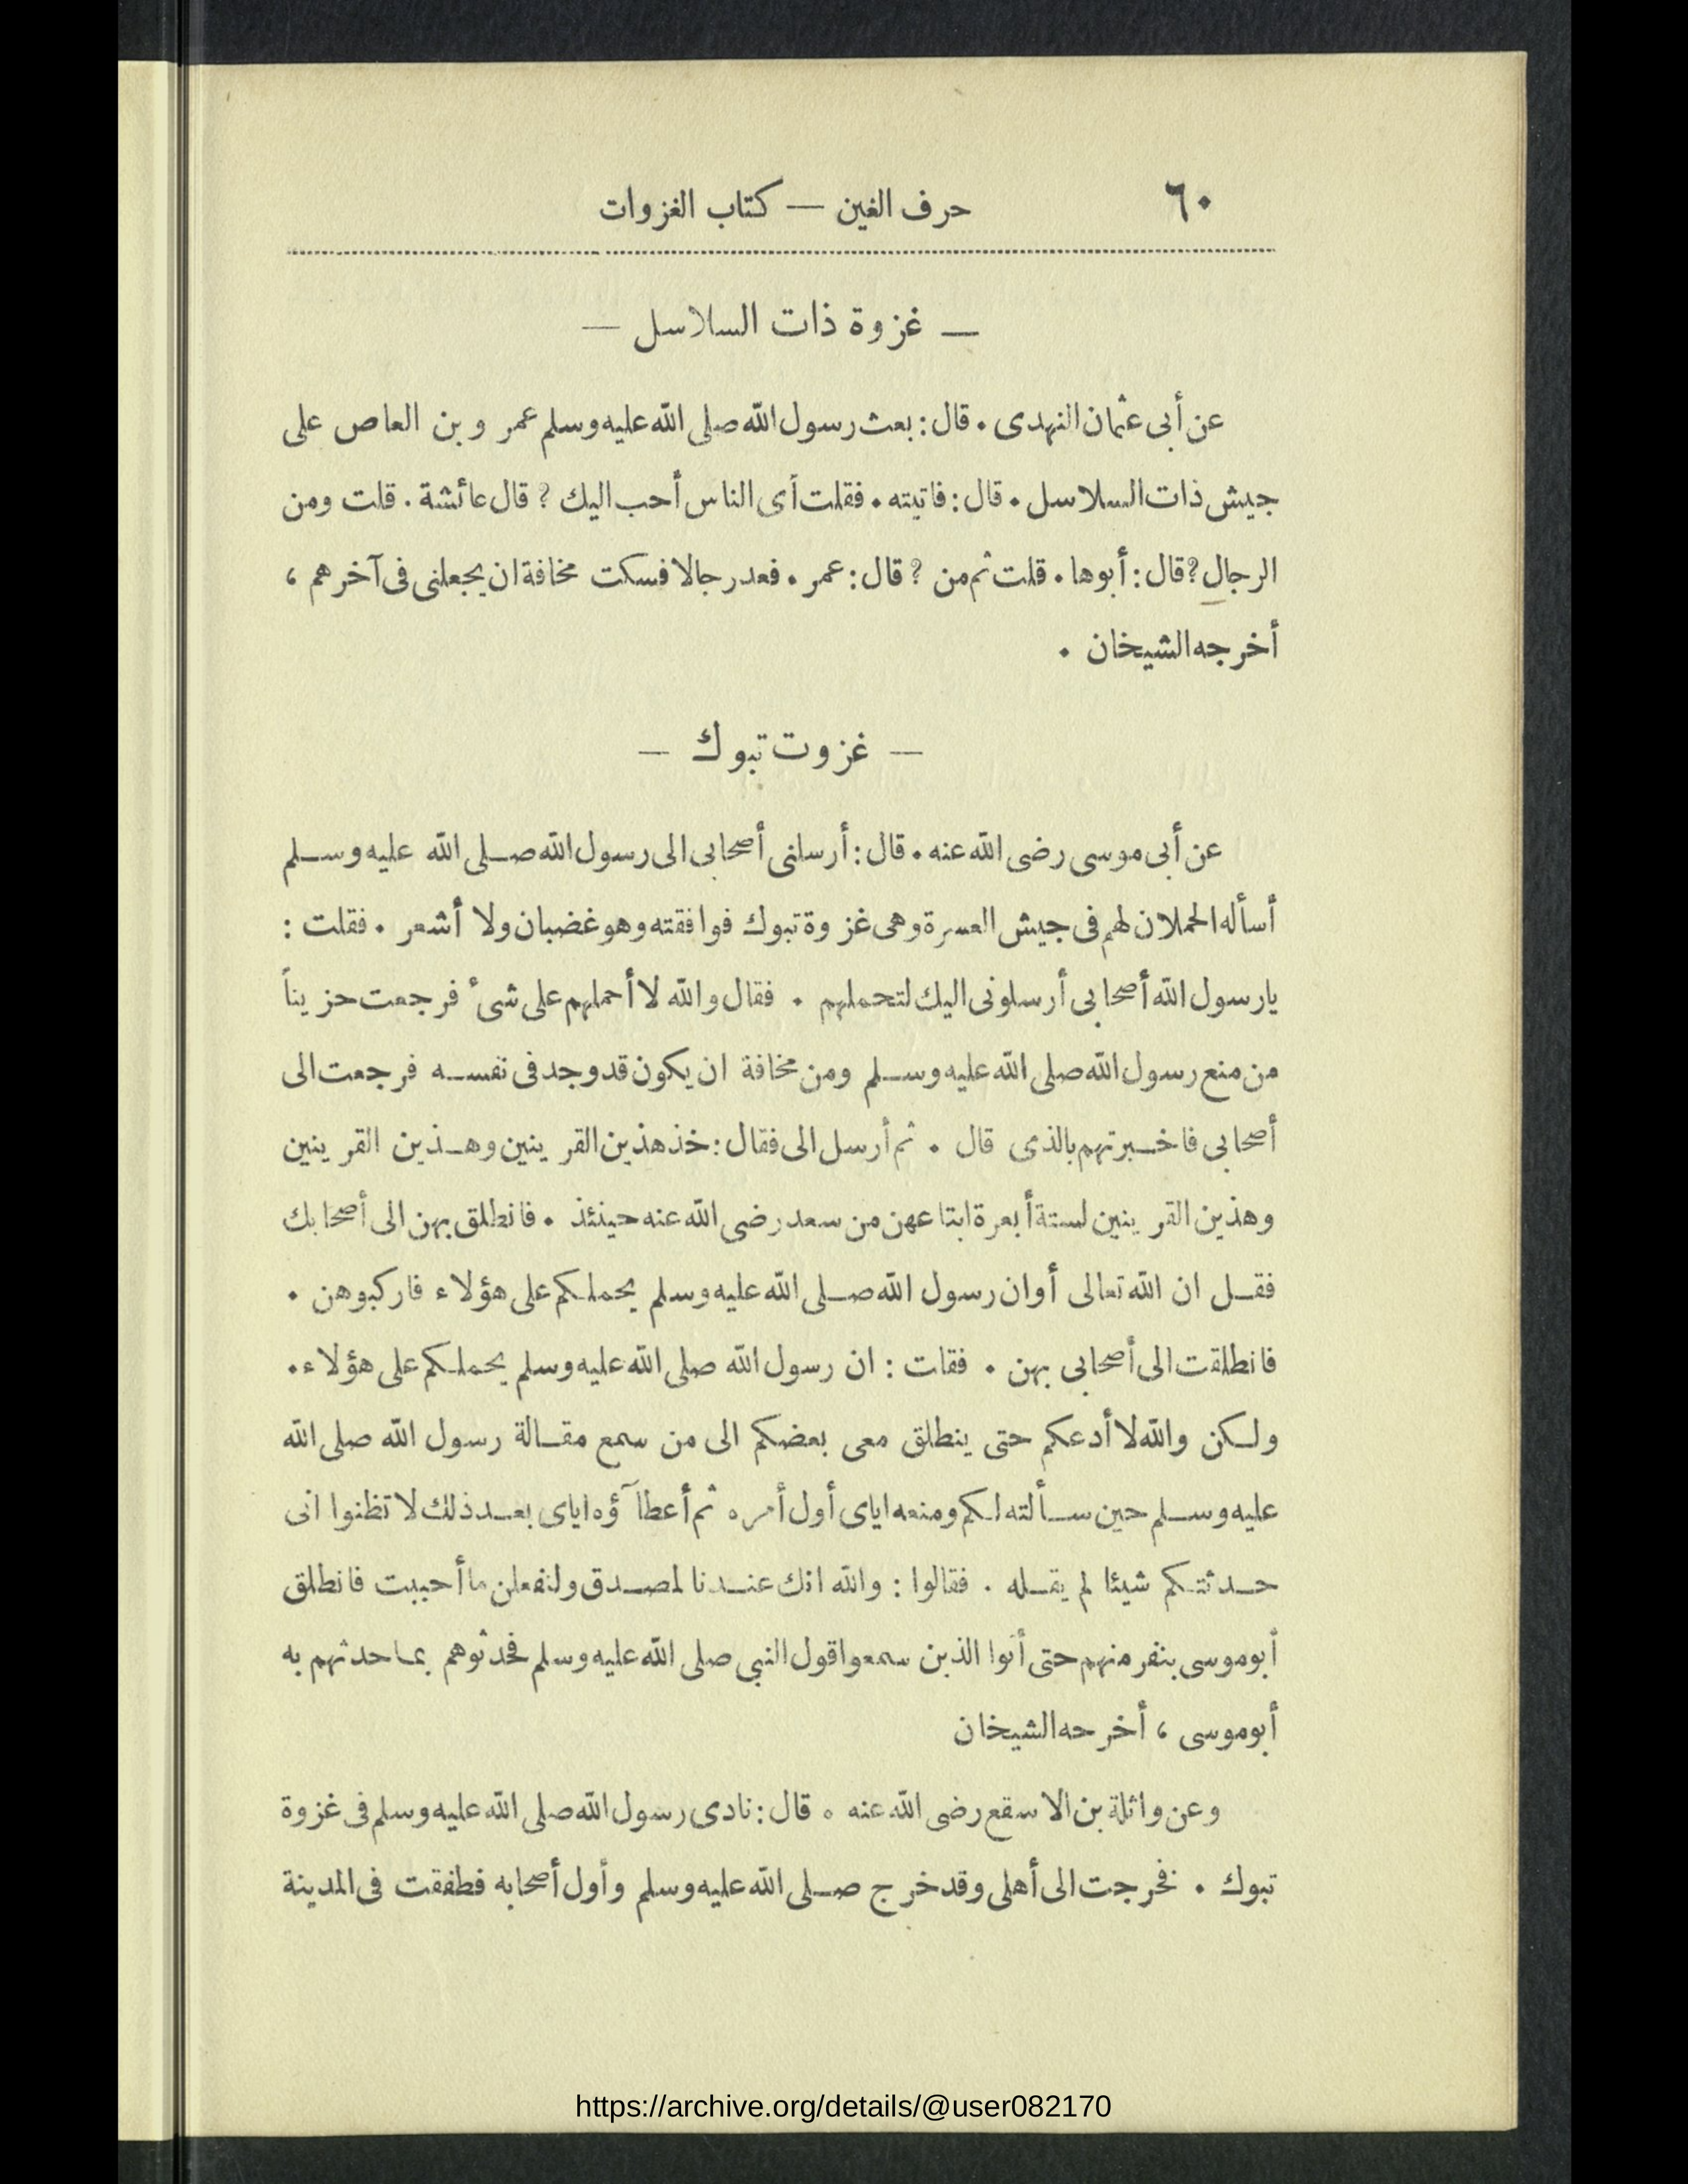 ٦٠
حرف الغين — كتاب الغزوات
— غزوة ذات السلاسل —
عن أبى عثمان النهدى . قال : بعث رسول الله صلى الله عليه وسلم عمر وبن العاص على
جيش ذات السلاسل . قال : فاتيته . فقلت أى الناس أحب اليك ? قال عائشة . قلت ومن
الرجال ? قال : أبوها . قلت ثم من ? قال : عمر . فعد رجالا فسكت مخافة ان يجعلنى فى آخرهم ،
أخرجه الشيخان .
— غزوت تبوك —
عن أبى موسى رضى الله عنه . قال : أرسلنى أصحابى الى رسول الله صلى الله عليه وسلم
أسأله الحملان لهم فى جيش العسرة وهى غزوة تبوك فوافقته وهو غضبان ولا أشعر . فقلت :
يارسول الله أصحابى أرسلونى اليك لتحملهم . فقال والله لا أحملهم على شئ فرجعت حزيناً
من منع رسول الله صلى الله عليه وسلم ومن مخافة ان يكون قد وجد فى نفسه فرجعت الى
أصحابى فاخبرتهم بالذى قال . ثم أرسل الى فقال : خذ هذين القرينين وهذين القرينين
وهذين القرينين لستة أبعرة ابتاعهن من سعد رضى الله عنه حينئذ . فانطلق بهن الى أصحابك
فقل ان الله تعالى أوان رسول الله صلى الله عليه وسلم يحملكم على هؤلاء فاركبوهن .
فانطلقت الى أصحابى بهن . فقات : ان رسول الله صلى الله عليه وسلم يحملكم على هؤلاء .
ولكن والله لا أدعكم حتى ينطلق معى بعضكم الى من سمع مقالة رسول الله صلى الله
عليه وسلم حين سألته لكم ومنعه اياى أول أمره ثم أعطآؤه اياى بعد ذلك لا تظنوا انى
حدثتكم شيئا لم يقله . فقالوا : والله انك عندنا لمصدق ولنفعلن ما أحببت فانطلق
أبوموسى بنفر منهم حتى أتوا الذين سمعوا قول النبى صلى الله عليه وسلم فحدثوهم بما حدثهم به
أبوموسى ، أخرحه الشيخان
وعن واثلة بن الاسقع رضى الله عنه . قال : نادى رسول الله صلى الله عليه وسلم فى غزوة
تبوك . فخرجت الى أهلى وقد خرج صلى الله عليه وسلم وأول أصحابه فطفقت فى المدينة
https://archive.org/details/@user082170